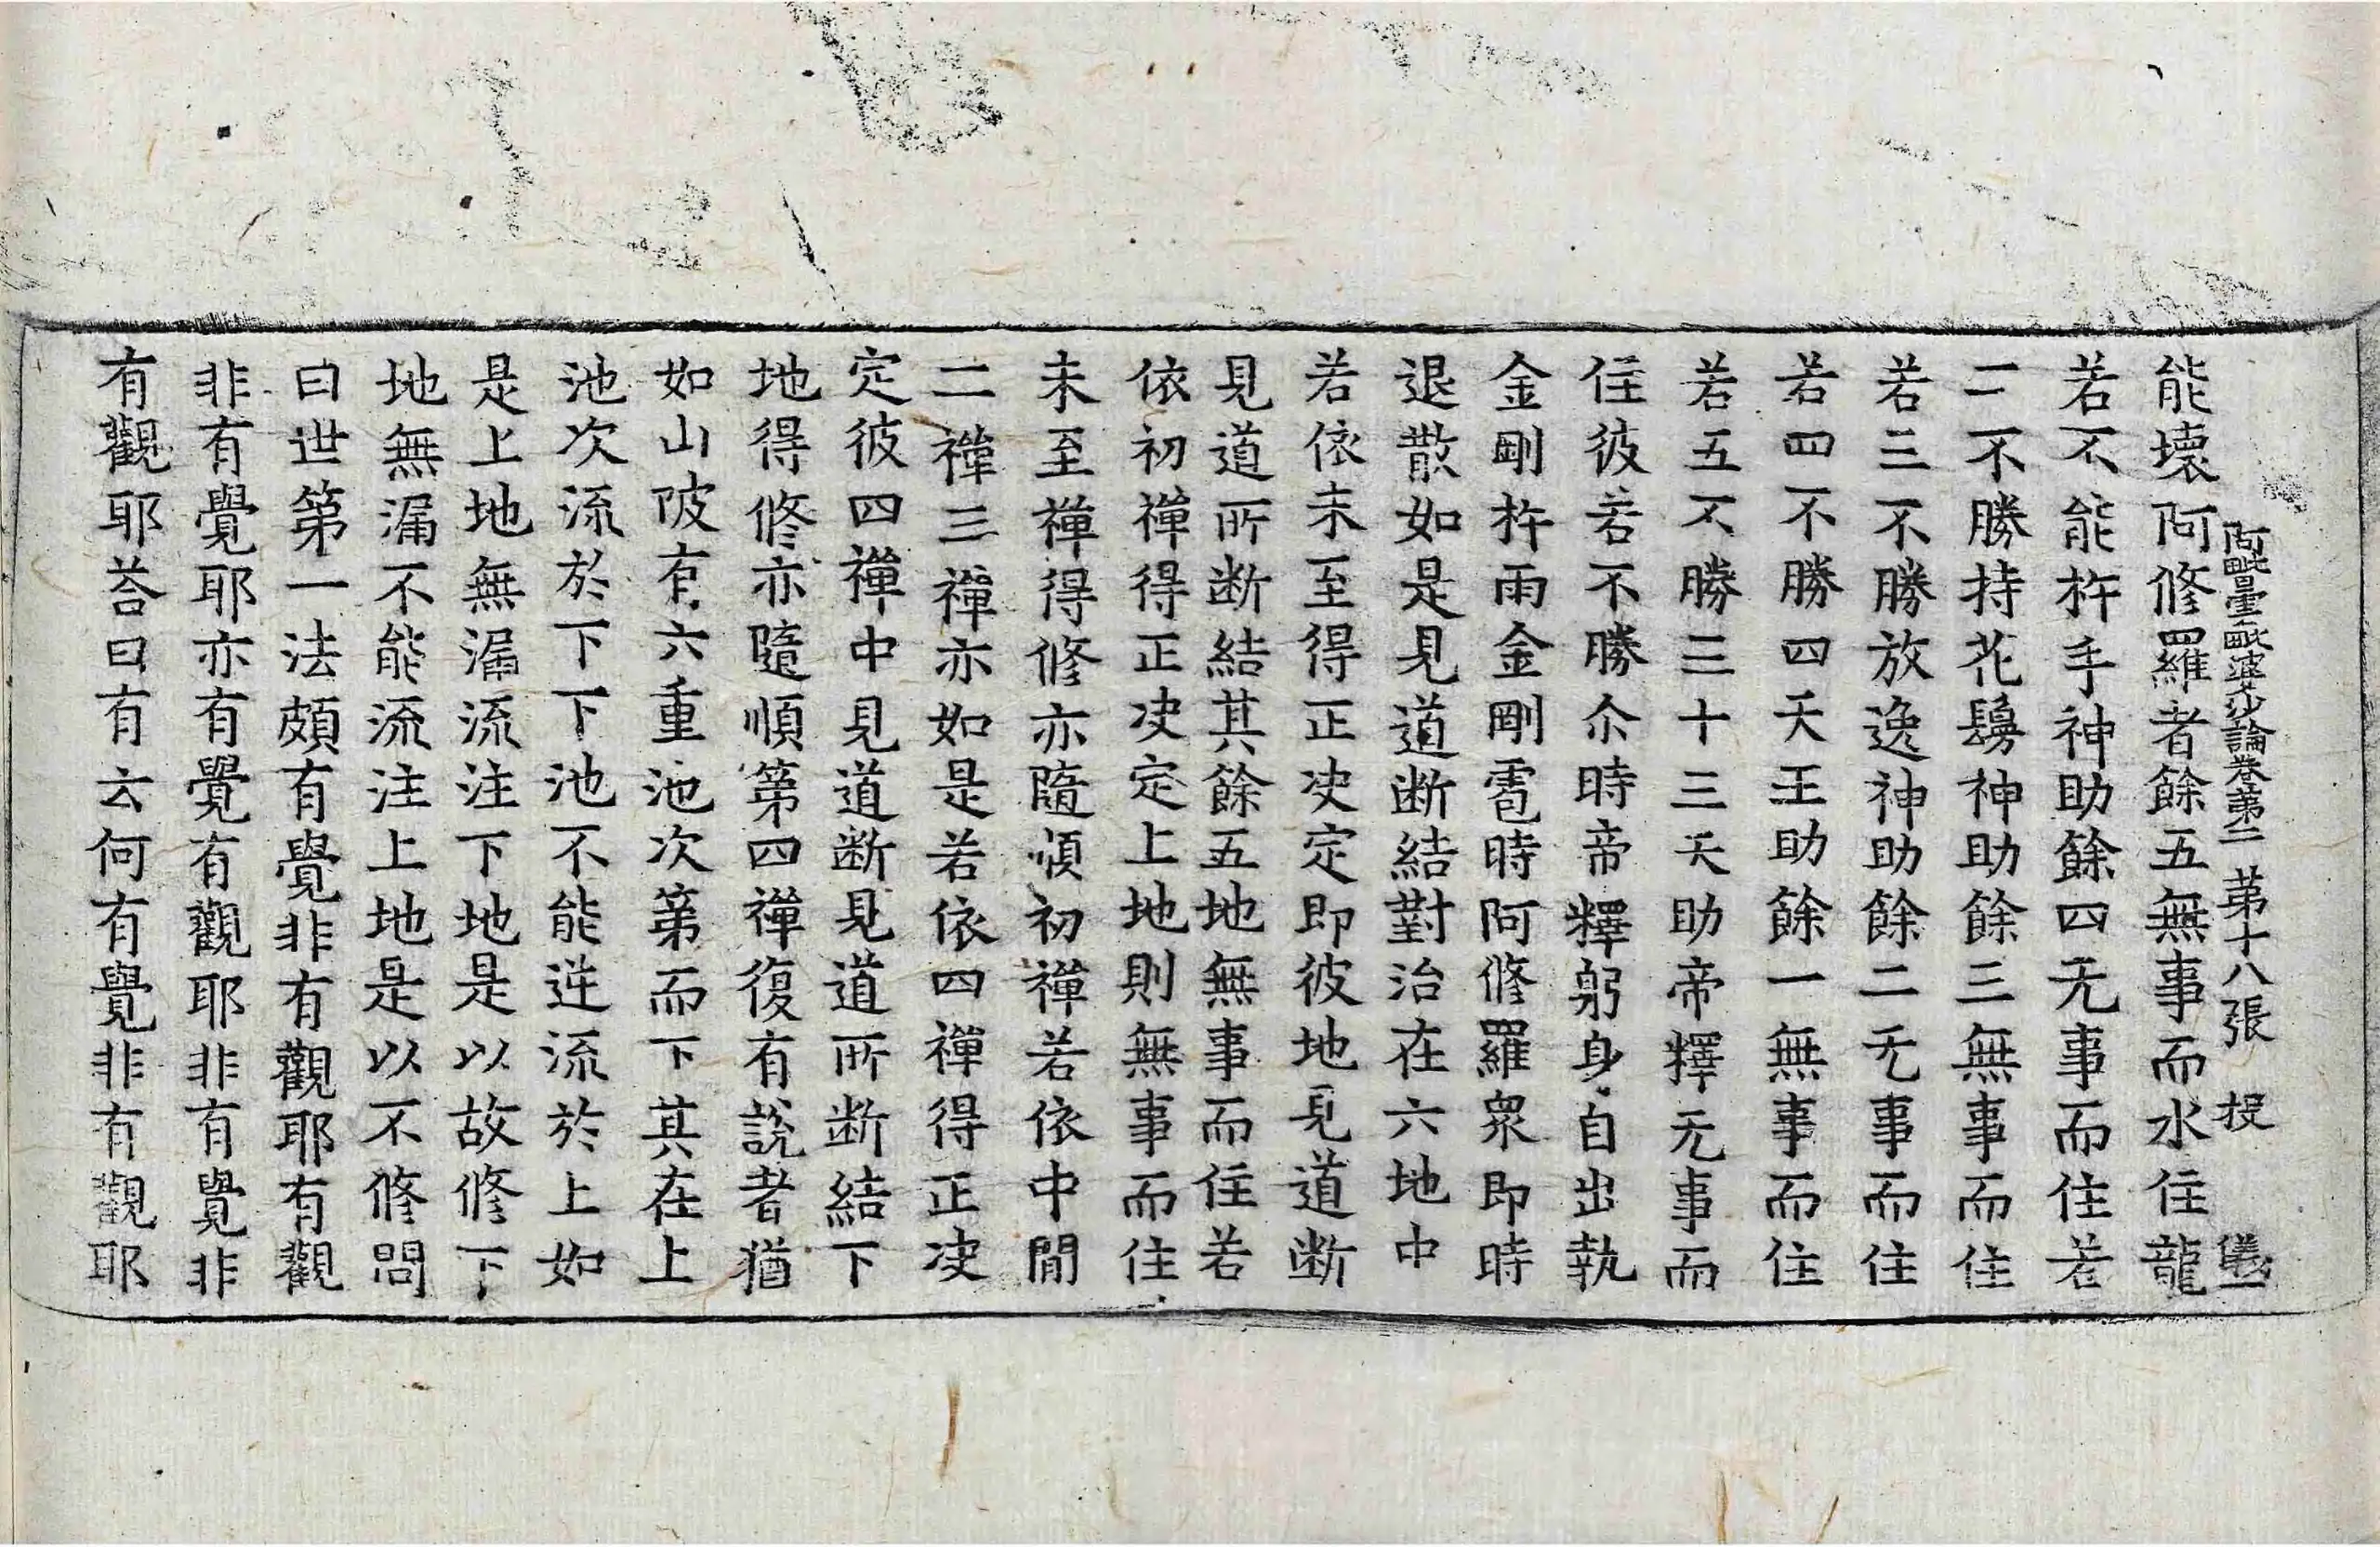 阿毗曇毗婆沙論卷第二　第十八張　授　儀一
能壞阿修羅者餘五無事而水住龍
若不能杵手神助餘四无事而住若
二不勝持花鬘神助餘三無事而住
若三不勝放逸神助餘二无事而住
若四不勝四天王助餘一無事而住
若五不勝三十三天助帝釋无事而
住彼若不勝尒時帝釋躬身自出執
金剛杵雨金剛雹時阿修羅眾即時
退散如是見道断結對治在六地中
若依未至得正决定即彼地見道断
見道所断結其餘五地無事而住若
依初禪得正决定上地則無事而住
未至禪得修亦隨順初禪若依中間
二禪三禪亦如是若依四禪得正决
定彼四禪中見道断見道所断結下
地得修亦隨順第四禪復有說者猶
如山陂有六重池次第而下其在上
池次流於下下池不能逆流於上如
是上地無漏流注下地是以故修下
地無漏不能流注上地是以不修問
曰世第一法頗有覺非有觀耶有觀
非有覺耶亦有覺有觀耶非有覺非
有觀耶荅曰有云何有覺非有觀耶